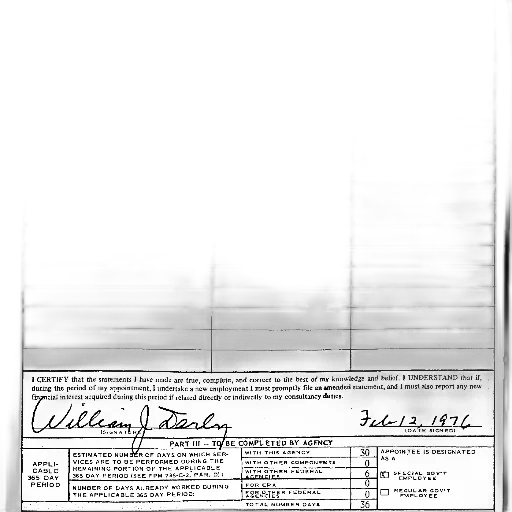 I CERTIFY that the statements I have made are true, complete, and correct to the best of my knowledge and belief. I UNDERSTAND that if,
during the period of my appointment, I undertake a new employment I must promptly file an amended statement, and I must also report any new
financial interest acquired during this period if related directly or indirectly to my consultancy duties.
William J. Darby Feb 12, 1976
(SIGNATURE) (DATE SIGNED)
PART III -- TO BE COMPLETED BY AGENCY
APPLI-
CABLE
365 DAY
PERIOD
ESTIMATED NUMBER OF DAYS ON WHICH SER-
VICES ARE TO BE PERFORMED DURING THE
REMAINING PORTION OF THE APPLICABLE
365 DAY PERIOD (SEE FPM 735-C-2, PAR. D):
WITH THIS AGENCY 30
WITH OTHER COMPONENTS 0
WITH OTHER FEDERAL
AGENCIES 6
NUMBER OF DAYS ALREADY WORKED DURING
THE APPLICABLE 365 DAY PERIOD:
FOR 0
FOR OTHER FEDERAL
AGENCIES 0
TOTAL NUMBER DAYS 36
APPOINTEE IS DESIGNATED
AS A
SPECIAL GOV'T
EMPLOYEE
REGULAR GOV'T
EMPLOYEE